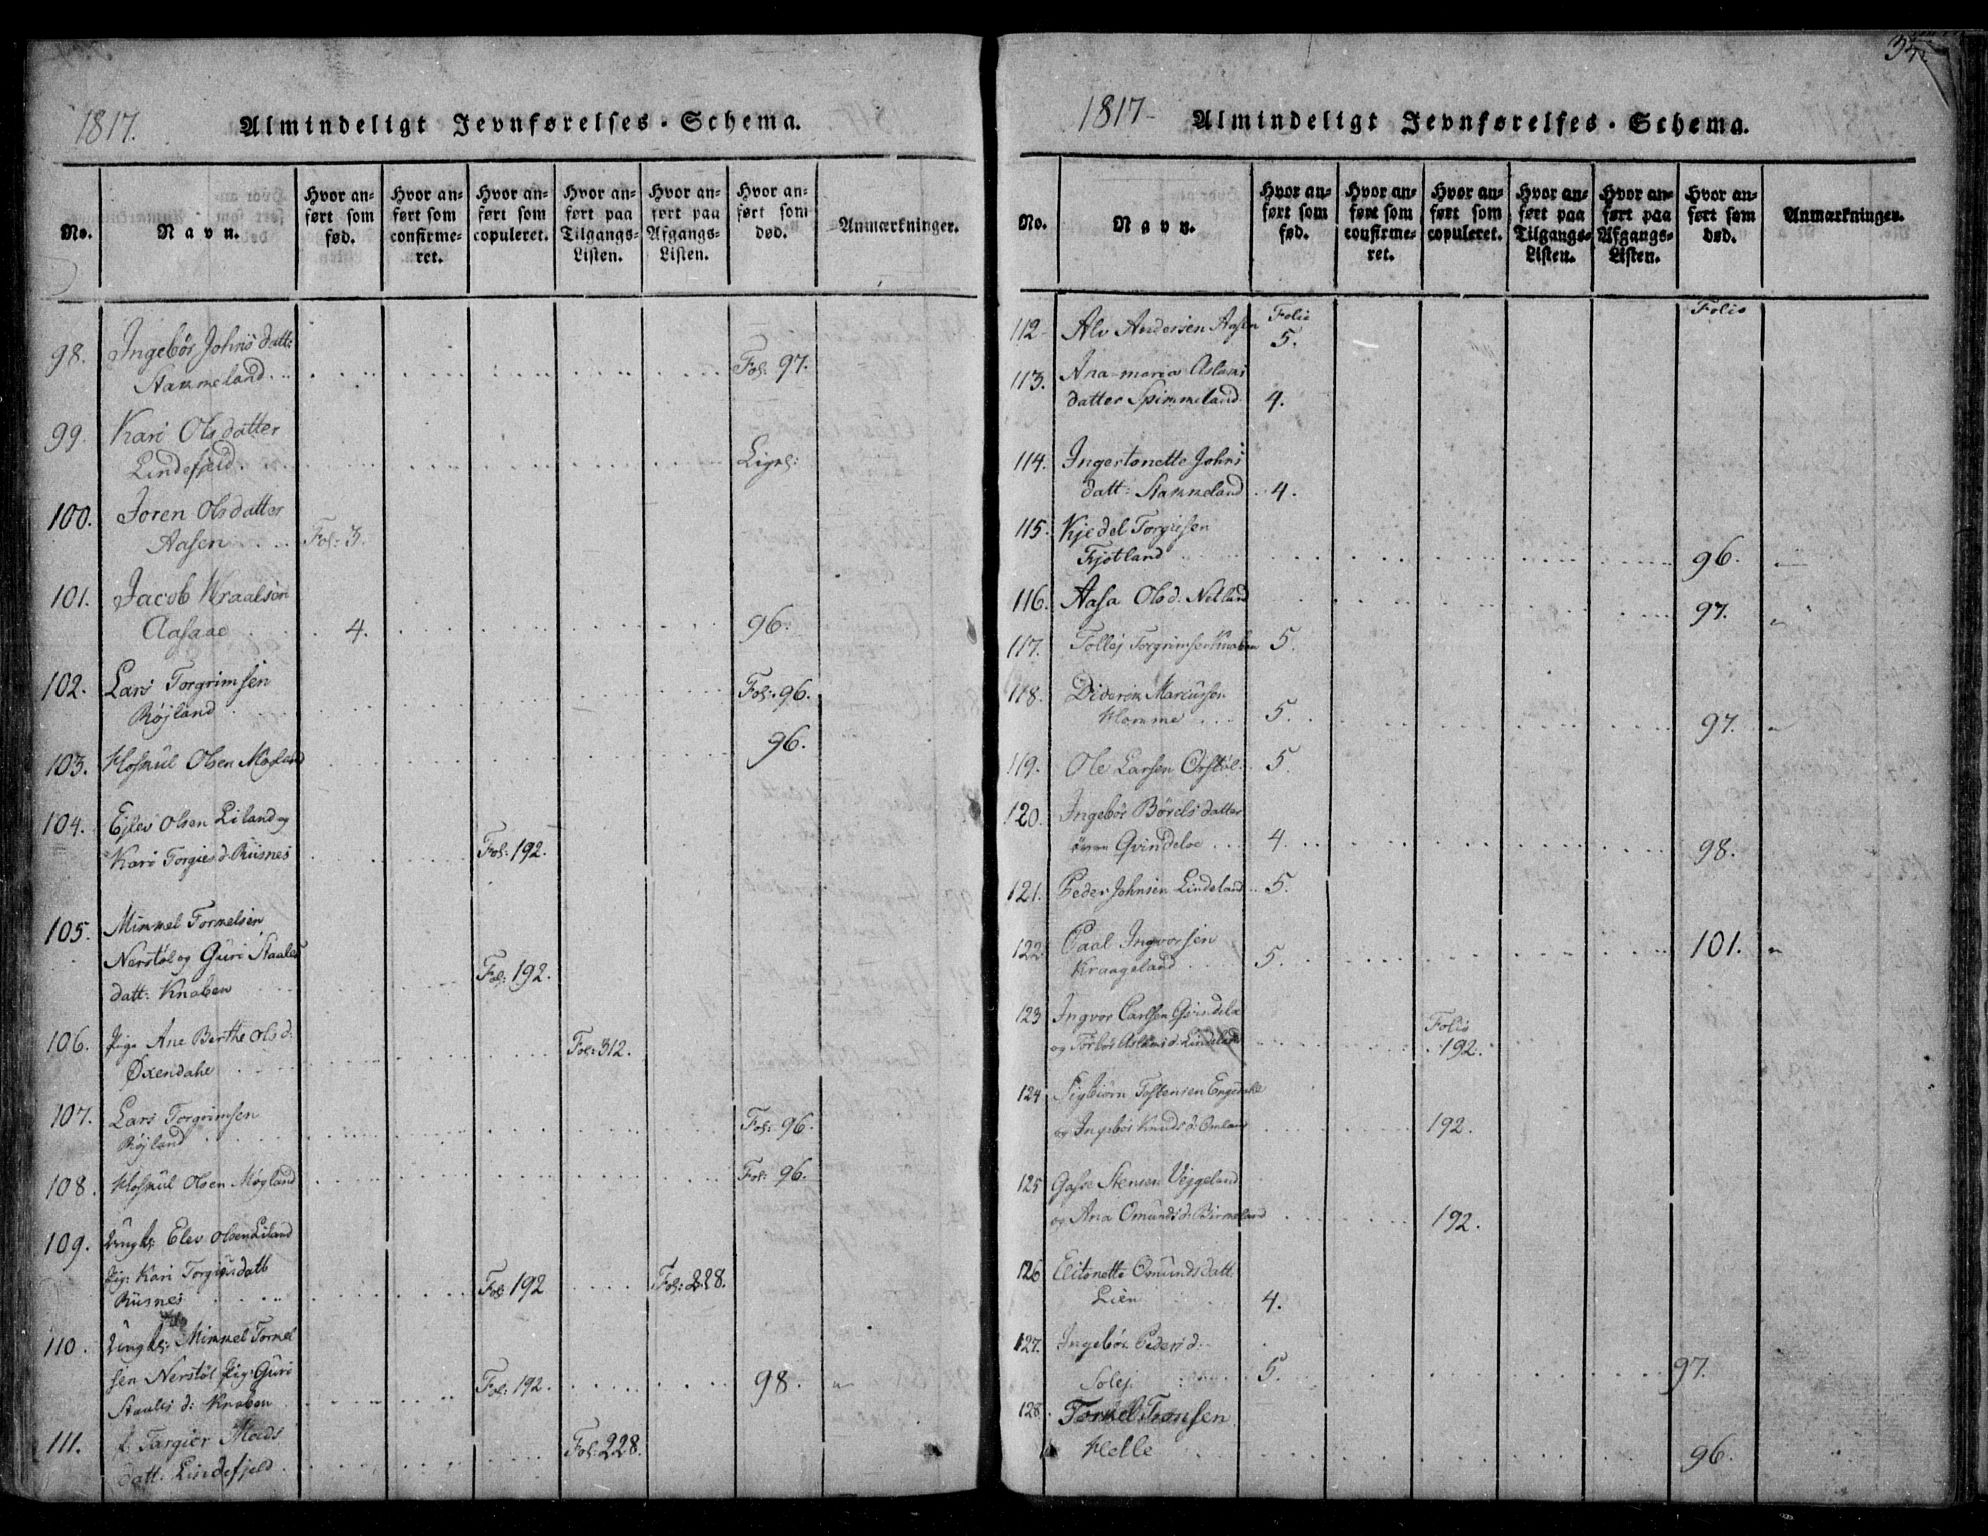 1817.
Almindeligt Jevnførelses-Schema.
No.
Navn.
Hvor anført som fød.
Hvor anført som confirmeret.
Hvor anført som copuleret.
Hvor anført paa Tilgangs-Listen.
Hvor anført paa Afgangs-Listen.
Hvor anført som død.
Anmærkninger.
98. Ingebör Johns datt:
Stammeland Fol: 97.
99. Kari Olsdatter
Lindefjeld Ligel:
100. Joren Olsdatter
Aasen Fol: 3.
101. Jacob Wraalsøn
Aasaae 4. 96.
102. Lars Torgrimsen
Røjland Fol: 96.
103. Hoskul Olsen Møgland 96.
104. Ejlev Olsen Liland og
Kari Torgiesd: Risnes Fol: 192.
105. Mimmel Tormelsen
Nerstöl og Guri Staales
datt: Knaben Fol: 192.
106. Pig. Ane Berthe Olsd:
Øxendahe Fol: 312.
107. Lars Torgrimsen
Røjland Fol: 96.
108. Hoskul Olsen Møgland Fol: 96.
109. Ungk: Elev Olsen Liland
Pig: Kari Torgiusdatt
Risnes Fol: 192 Fol: 228.
110. Ungk: Mimmel Tormel
sen Nerstöl Pig: Guri
Staales d: Knaben Fol: 192. 98. "
111. f. Targier Mads
datt. Lindefjeld Fol: 228.
34
1817-
Almindeligt Jevnførelses-Schema.
No.
Navn.
Hvor anført som fød.
Hvor anført som confirmeret.
Hvor anført som copuleret.
Hvor anført paa Tilgangs-Listen.
Hvor anført paa Afgangs-Listen.
Hvor anført som død.
Anmærkninger.
Folio Folio
112 Alv Andersen Aasen 5.
113. Ana-maria Aslaks
datter Spimmeland 4.
114. Ingertonette Johns
datt: Stammeland 4.
115. Kjedel Torgiesen
Fjotland 96.
116. Aasa Olsd: Netland 97. "
117. Tollej Torgrimsen Knaben 5.
118. Diderik Marcussen
Homme 5. 97. "
119. Ole Larsen Orstöl 5.
120. Ingebör Börels datter
Qvindeloe 4. 98.
121. Peder Johnsen Lindeland 5.
122 Paal Ingvorsen
Kraageland 5. 101. "
123 Ingvor Carlsen
og Torbör Aslksd: Lindeland Folio 192.
124 Sigbiørn Tostensen
og Ingebör Knudsd: Omland 192.
125 Gasse Stensen Veggeland
og Ana Omundsd: Birmeland 192.
126 Elitonette Omundsdatt.
Lien 4.
127. Ingebör Pedersd:
Solej 5. 97.
128. Tormel Tronsen
Helle 96.